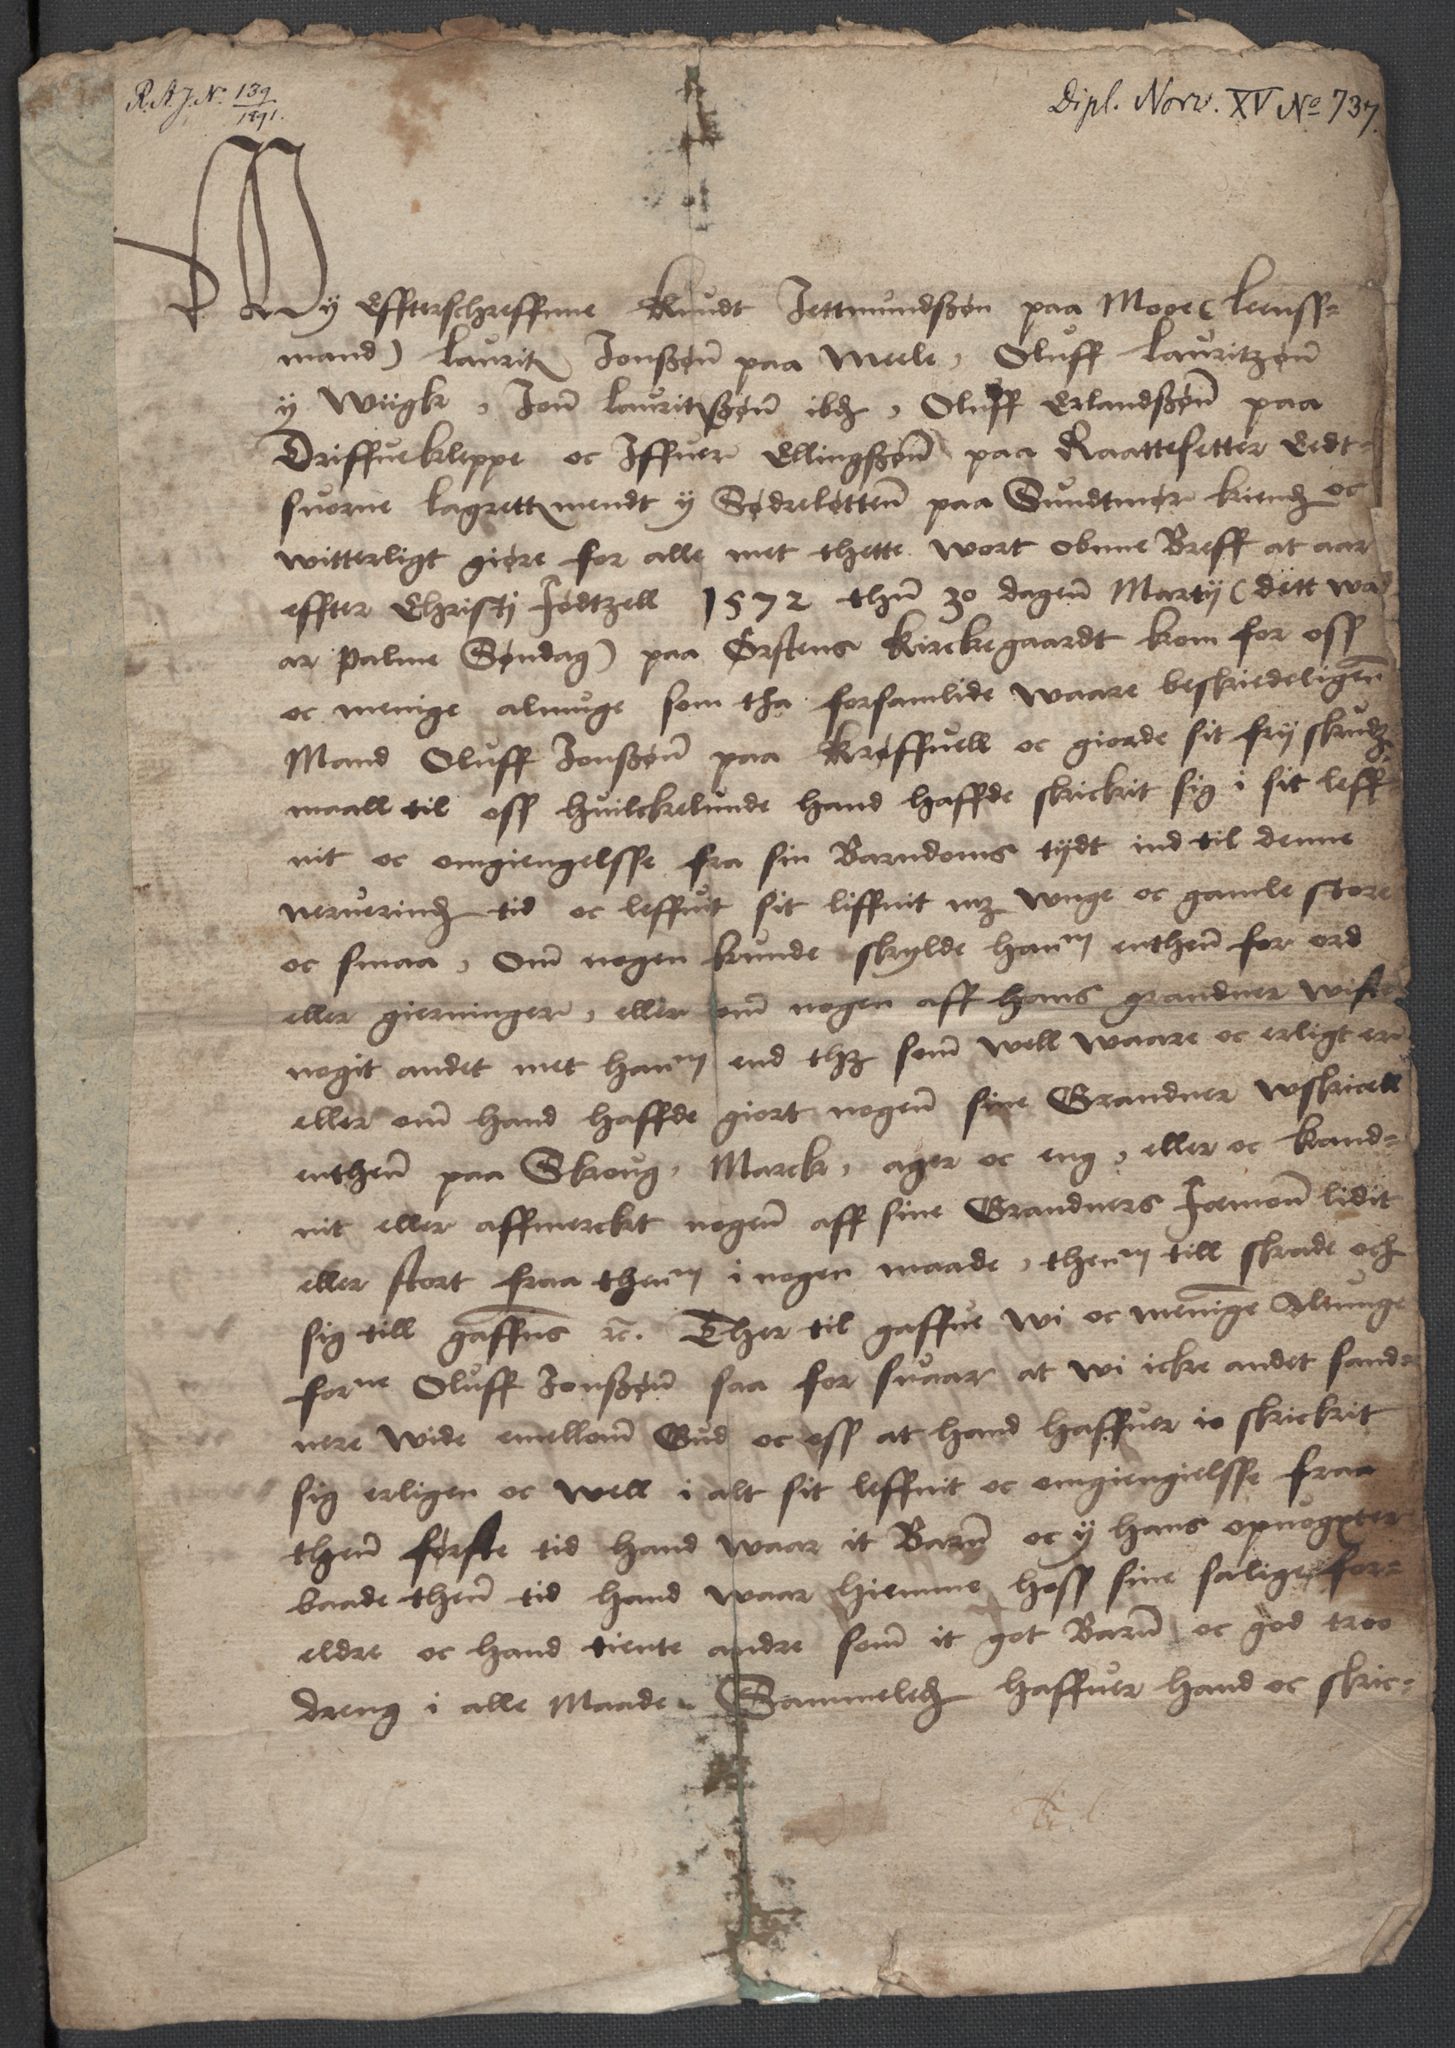 R.A.J.N. 139/1891.
Dipl. Norv. XV No 737.
Wy Effterschreffnne Knudt Jettmundßøn paa Mooe (leenss-
mand) Lauritz Jonßøn paa Meele, Oluff Lauritzøn
ÿ Wiigk, Jon Lauritzßøn ibd, Oluff Erlandßøn paa
Driffuekleppe oc Iffuer Ellingßøn paa Raattesetter Eedt-
suorne lagrettmendt ÿ Sødreløtten paa Sundtmør kiend oc
witterligt giøre for alle met thette wort obnne Breff at aar
effter Christj Fødtzell 1572 thn 30 dagen Martÿ (dett wa
ar Palme Søndag) paa Ørstens Kirckegaardt kom for oss
oc menige almuge som tha forsamlide waare beskiedeligen
Mand Oluff Jonßøn paa Krøffuell oc giorde sit frÿ skudz-
maall til oss huilckelunde hand haffde skickit sig i sit leff-
nit oc omgiengelsse fra sin Barndoms tÿdt ind til denne
neruerind tid oc leffuit sit liffnit mz wnge oc gamle store
oc smaa, Om nogen kunde skylde hanm enthen for ord
eller gierninger, eller om nogen aff hans grandner wiste
nogit andet met hanm end thz som well waare oc erligt er
eller om hand haffde giort nogen sine Grandner wskicell
enthen paa Skoug, Marck, ager oc eng, eller oc kand-
nit eller affmerckt nogen aff sine Grandners Fæmon lidit
eller stort fraa thenm i nogen maade, thenm till skade och
sig till gaffns etc. Ther til gaffue wi oc menige Almuge
forne Oluff Jonßøn saa for suaar at wi icke andet sand-
nere wide emellom Gud oc oss at hand haffuer io skickit
sig erligen oc well i alt sit leffnit oc omgiengielsse fraa
then første tid hand waar it Barn oc ÿ hans opuogxter
baade then tid hand waar hiemme hoss sine salige for-
eldre oc hand tiente andre som it got Barn oc god troo
dreng i alle Maade. Sammeled haffuer hand oc skic-